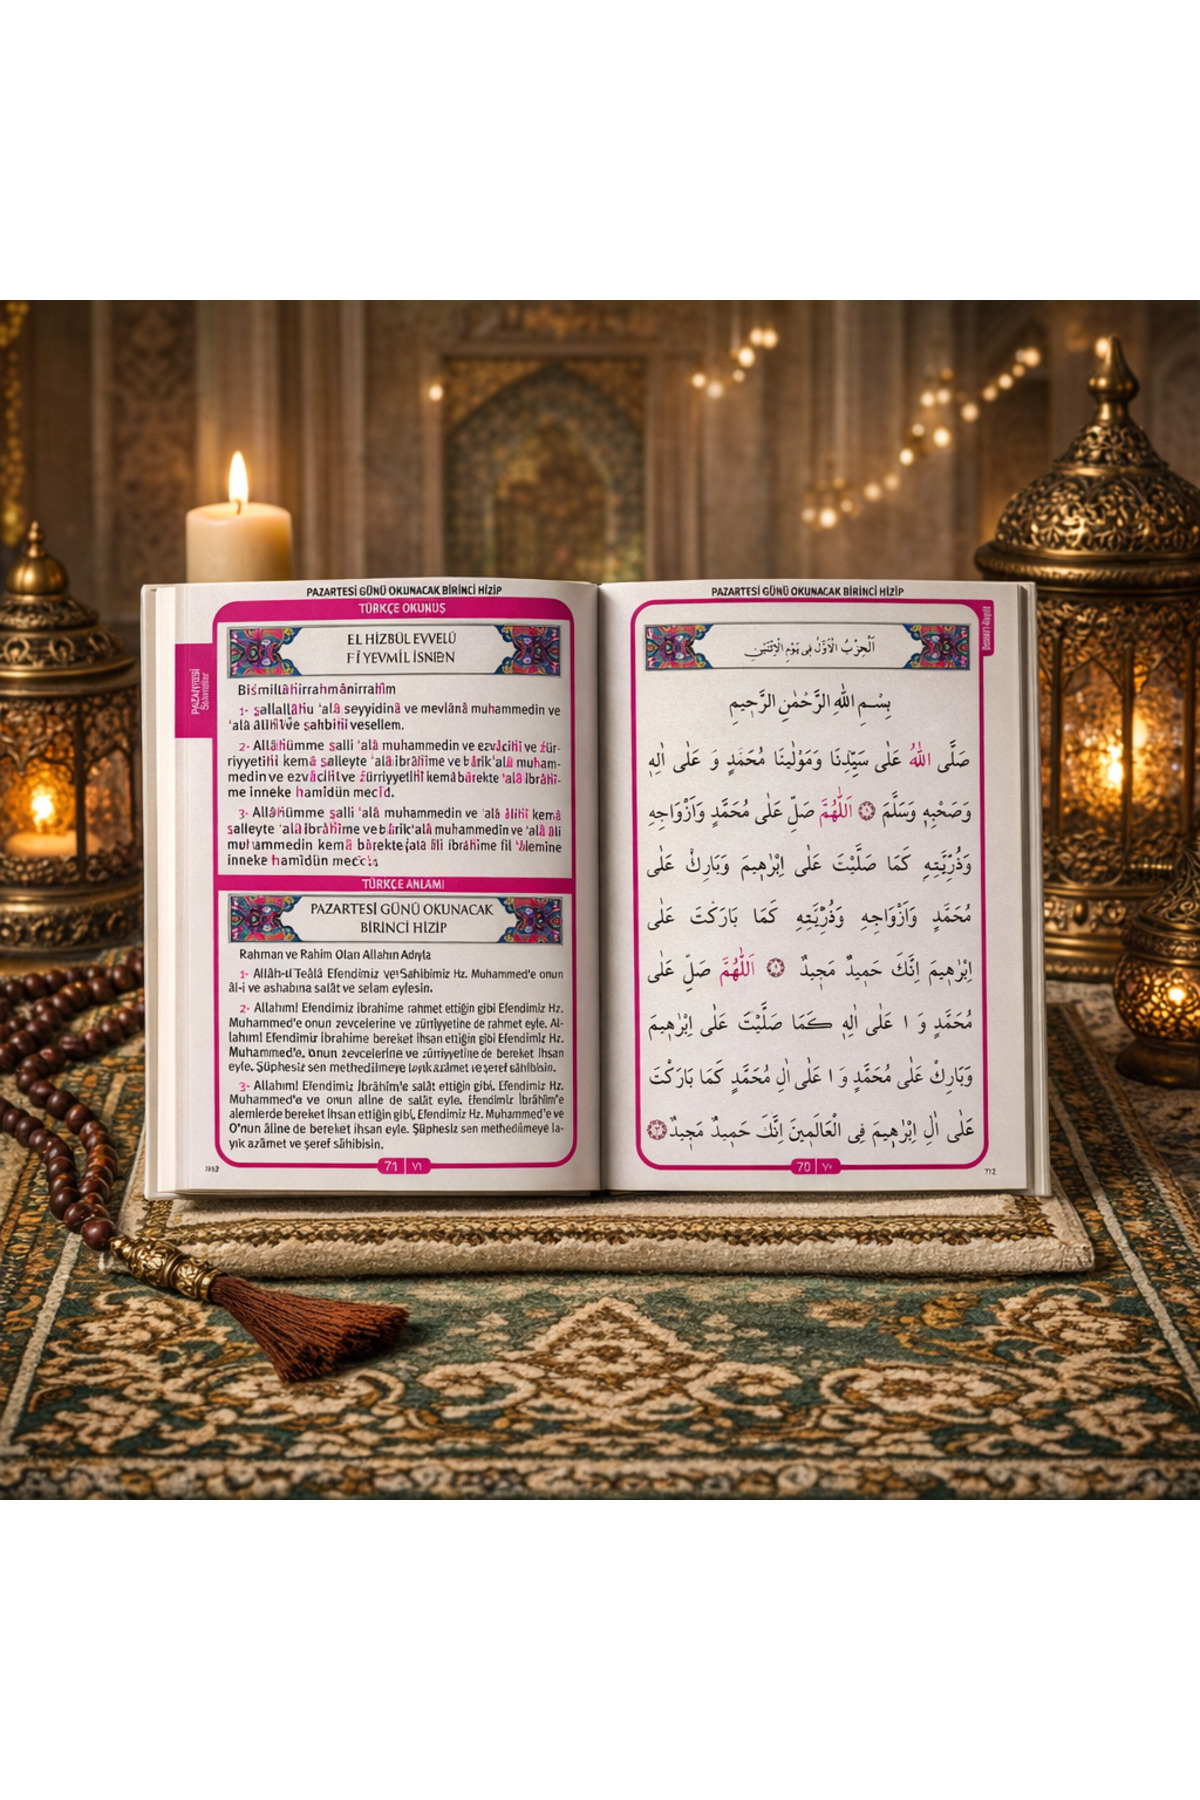 PAZARTESİ GÜNÜ OKUNACAK BİRİNCİ HİZİP
TÜRKÇE OKUNUŞ
EL HİZBÜL EVVELÜ
FÎ YEVMİL İSNEYN
Bismillâhirrahmânirrahîm
1- sallallâhu 'alâ seyyidinâ ve mevlânâ muhammedin ve
'alâ âlihî ve sahbihî vesellem.
2- Allâhümme salli 'alâ muhammedin ve ezvâcihî ve zür-
riyyetihî kemâ salleyte 'alâ ibrâhîme ve bârik 'alâ muham-
medin ve ezvâcihî ve zürriyyetihî kemâ bârekte 'alâ ibrâhî-
me inneke hamîdün mecîd.
3- Allâhümme salli 'alâ muhammedin ve 'alâ âlihî kemâ
salleyte 'alâ ibrâhîme ve bârik 'alâ muhammedin ve 'alâ âli
muhammedin kemâ bârekte âli ibrâhîme fil 'âlemîne
inneke hamîdün
TÜRKÇE ANLAMI
PAZARTESİ GÜNÜ OKUNACAK
BİRİNCİ HİZİP
Rahman ve Rahim Olan Allahın Adıyla
1- Allâh-ü Teâlâ Efendimiz ve Sahibimiz Hz. Muhammed'e onun
âl-i ve ashabına salât ve selam eylesin.
2- Allahım! Efendimiz ibrahime rahmet ettiğin gibi Efendimiz Hz.
Muhammed'e onun zevcelerine ve zürriyyetine de rahmet eyle. Al-
lahım! Efendimiz İbrahime bereket ihsan ettiğin gibi Efendimiz Hz.
Muhammed'e, onun zevcelerine ve zürriyyetine de bereket ihsan
eyle. Şüphesiz sen methedilmeye layık azâmet ve şeref sâhibisin.
3- Allahım! Efendimiz İbrâhim'e salât ettiğin gibi, Efendimiz Hz.
Muhammed'e ve onun aline de salât eyle. Efendimiz İbrâhim'e
alemlerde bereket ihsan ettiğin gibi, Efendimiz Hz. Muhammed'e ve
O'nun âline de bereket ihsan eyle. Şüphesiz sen methedilmeye la-
yık azâmet ve şeref sâhibisin.
71 ٧١
PAZARTESİ GÜNÜ OKUNACAK BİRİNCİ HİZİP
اَلْحِزْبُ الْاَوَّلُ فِى يَوْمِ الْاِثْنَيْنِ
بِسْمِ اللّٰهِ الرَّحْمٰنِ الرَّحِيمِ
صَلَّى اللّٰهُ عَلٰى سَيِّدِنَا وَمَوْلٰينَا مُحَمَّدٍ وَ عَلٰى اٰلِهِ
وَصَحْبِهِ وَسَلَّمَ ۝١ اَللّٰهُمَّ صَلِّ عَلٰى مُحَمَّدٍ وَاَزْوَاجِهِ
وَذُرِّيَّتِهِ كَمَا صَلَّيْتَ عَلٰى اِبْرٰهِيمَ وَبَارِكْ عَلٰى
مُحَمَّدٍ وَاَزْوَاجِهِ وَذُرِّيَّتِهِ كَمَا بَارَكْتَ عَلٰى
اِبْرٰهِيمَ اِنَّكَ حَمِيدٌ مَجِيدٌ ۝ اَللّٰهُمَّ صَلِّ عَلٰى
مُحَمَّدٍ وَ ا عَلٰى اٰلِهِ كَمَا صَلَّيْتَ عَلٰى اِبْرٰهِيمَ
وَبَارِكْ عَلٰى مُحَمَّدٍ وَ ا عَلٰى اٰلِ مُحَمَّدٍ كَمَا بَارَكْتَ
عَلٰى اٰلِ اِبْرٰهِيمَ فِى الْعَالَمِينَ اِنَّكَ حَمِيدٌ مَجِيدٌ ۝
70 ٧٠